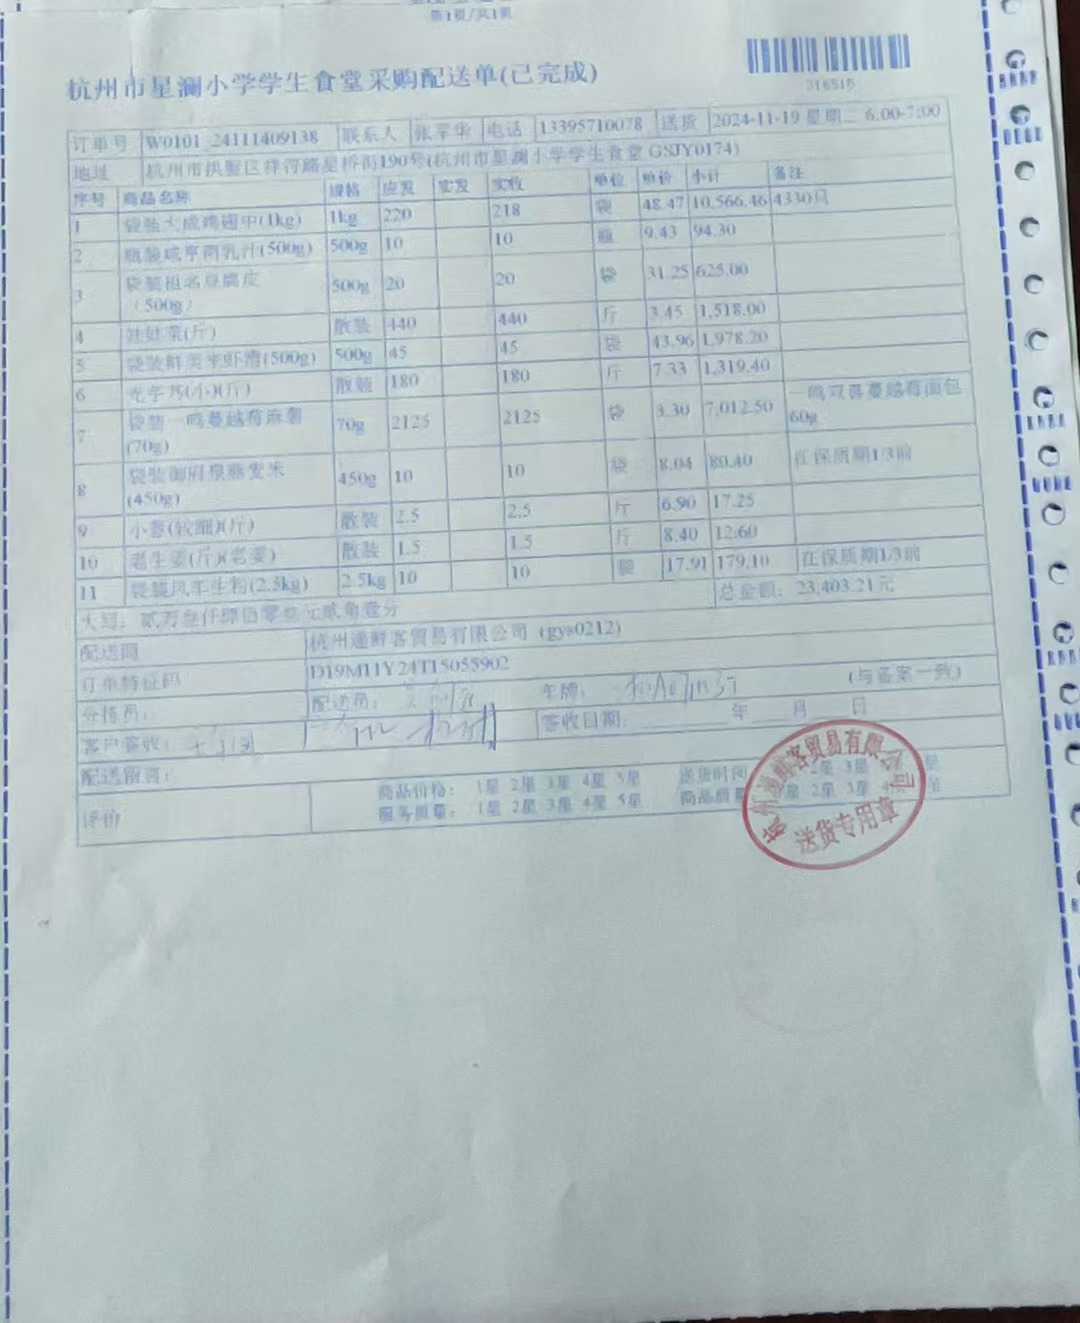 第1页/共1页
杭州市星澜小学学生食堂采购配送单(已完成)
316515
订单号 W0101_24111409138 联系人 张军华 电话 13395710078 送货 2024-11-19 星期二 6:00-7:00
地址 杭州市拱墅区祥符路星桥街190号(杭州市星澜小学学生食堂 GSJY0174)
序号 商品名称 规格 应发 实发 实收 单位 单价 小计 备注
1 袋装大成鸡翅中(1kg) 1kg 220 218 袋 48.47 10,566.46 4330只
2 瓶装咸亨南乳汁(500g) 500g 10 10 瓶 9.43 94.30
3 袋装祖名豆腐皮(500g) 500g 20 20 袋 31.25 625.00
4 娃娃菜(斤) 散装 440 440 斤 3.45 1,518.00
5 袋装鲜美来虾滑(500g) 500g 45 45 袋 43.96 1,978.20
6 (小)(斤) 散装 180 180 斤 7.33 1,319.40
7 袋装一鸣蔓越莓麻薯(70g) 70g 2125 2125 袋 3.30 7,012.50 一鸣双喜蔓越莓面包60g
8 袋装御府泉燕麦米(450g) 450g 10 10 袋 8.04 80.40 在保质期1/3前
9 小葱(较细)(斤) 散装 2.5 2.5 斤 6.90 17.25
10 老生姜(斤)(老姜) 散装 1.5 1.5 斤 8.40 12.60
11 袋装风车生粉(2.5kg) 2.5kg 10 10 袋 17.91 179.10 在保质期1/3前
大写：贰万叁仟肆佰零叁元贰角壹分 总金额：23,403.21元
配送商 杭州通鲜客贸易有限公司 (gys0212)
订单特征码 D19M11Y24T15055902
分拣员： 配送员： 车牌： (与备案一致)
客户签收： 签收日期： 年 月 日
配送留言：
评价 商品价格： 1星 2星 3星 4星 5星 送货时间 2星 3星 星
服务质量： 1星 2星 3星 4星 5星 商品质量 星 2星 3星 4星
杭州通鲜客贸易有限公司
送货专用章